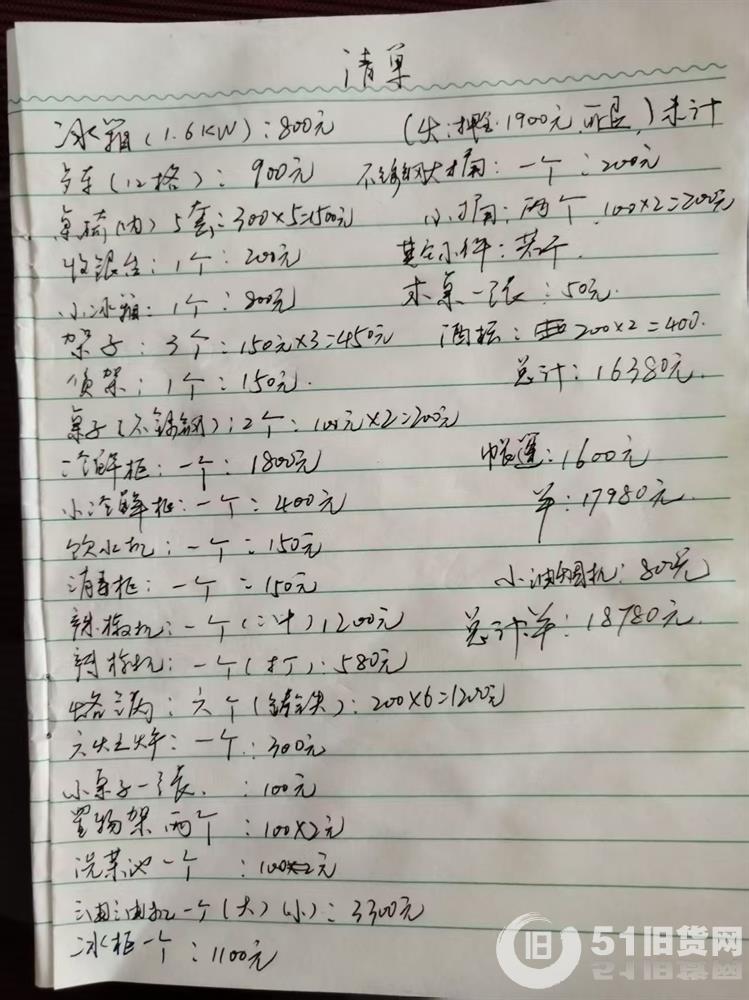 清单
冰箱(1.6KW):800元
(12格):900元
桌椅(内)5套:300×5=1500元
收银台:1个:200元
小冰箱:1个:800元
架子:3个:150元×3=450元
货架:1个:150元.
桌子(不锈钢):2个:100元×2=200元
冷鲜柜:一个:1800元
小冷鲜柜:一个:400元
饮水机:一个:150元
消毒柜:一个:150元
辣椒机:一个():1200元
辣椒机:一个(打):580元
六个():200×6=1200元
六火土灶:一个:300元
小桌子一张.:100元
置物架两个:100×2元
洗菜池一个:100×2元
一个(大)(小):3300元
冰柜一个:1100元
(1900元)未计
不锈钢大:一个:200元
小:两个 100×2=200元
其它小件:若干
木桌一张:50元.
酒坛:200×2=400.
总计:16380元.
1600元
:17980元.
小油烟机:800元
总计:18780元.
51旧货网